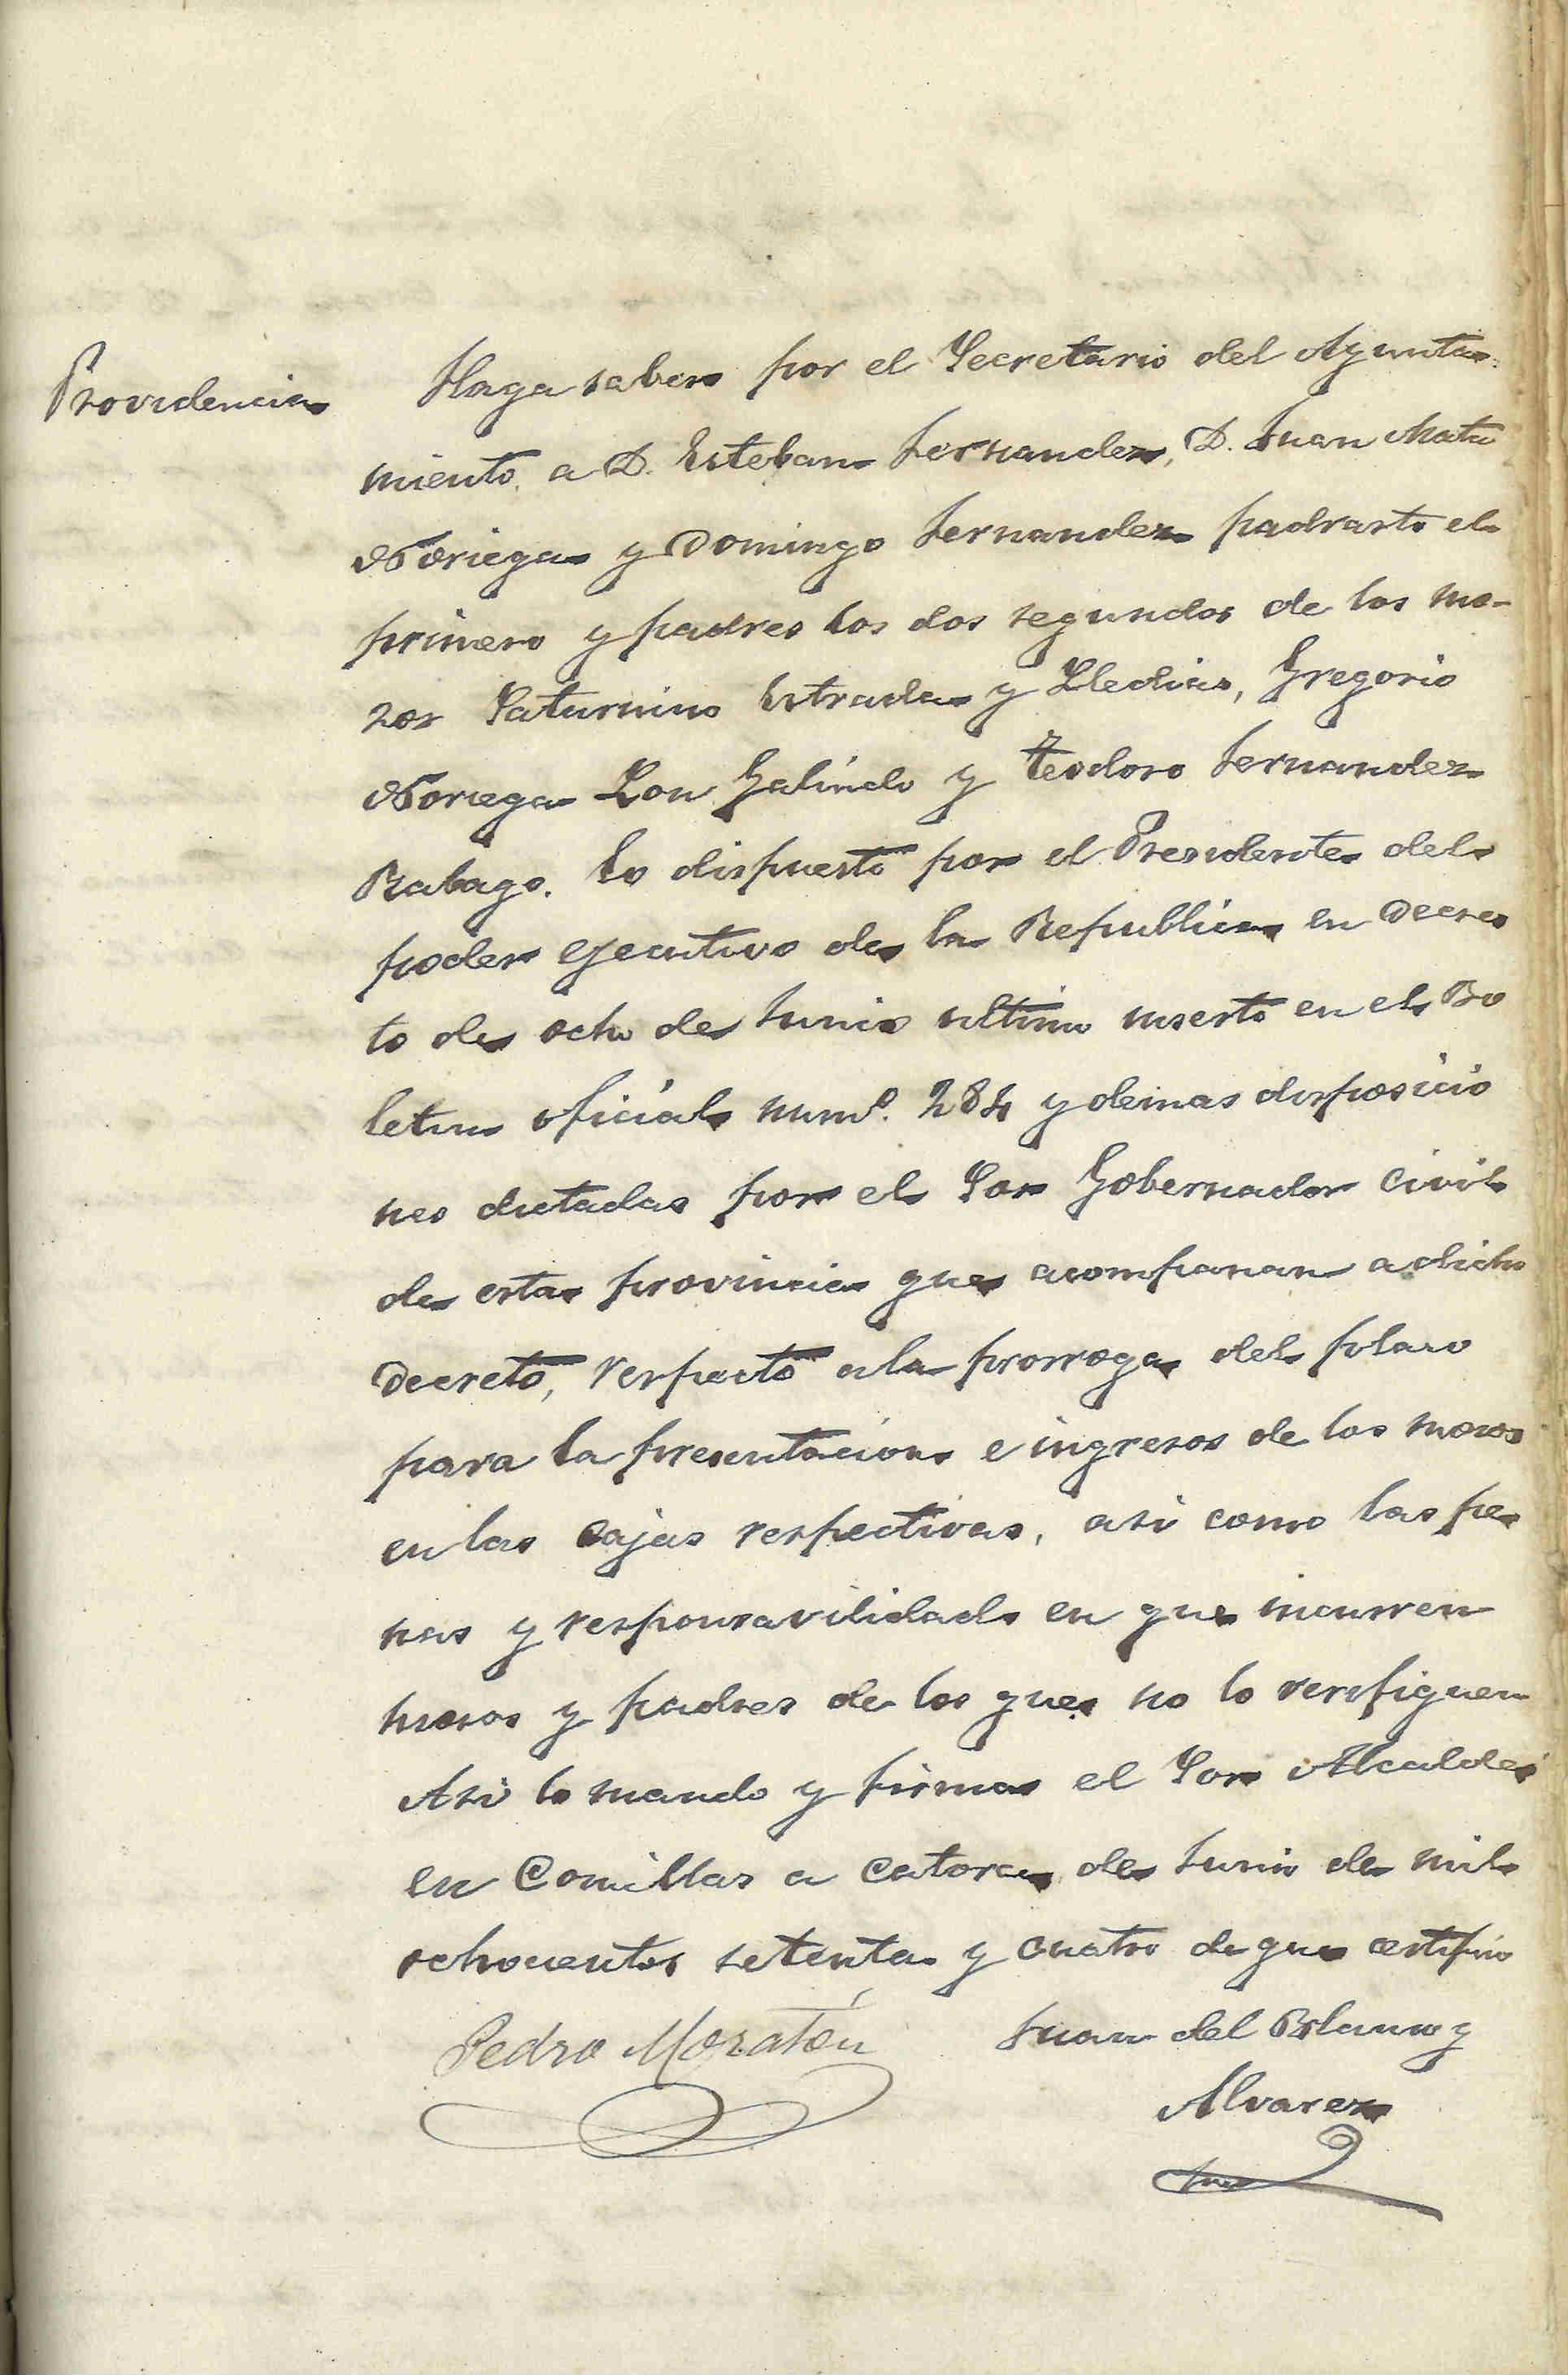 Providencia
Haga saber por el Secretario del Ayunta
miento a D. Esteban Fernandez, D. Juan Mata
Noriega y Domingo Fernandez padrasto el
primero y padres los dos segundos de los mo-
zos Saturnino Estrada y Lledias, Gregorio
Noriega Lon Galindo y Teodoro Fernandez
Rabago. Lo dispuesto por el Presidente del
poder ejecutivo de la Republica en Decre
to de ocho de Junio ultimo inserto en el Bo
letin oficial num.º 284 y demas disposicio
nes dictadas por el Sor Gobernador civil
de esta provincia que acompanan a dicho
Decreto, respecto a la prorroga del plazo
para la presentacion e ingresos de los mozos
en las cajas respectivas, asi como las pe
nas y responsavilidad en que incurren
mozos y padres de los que no lo verifiquen
Asi lo mando y firma el Sor Alcalde
en Comillas a catorce de Junio de mil
ochocientos setenta y cuatro de que certifico
Pedro Moratón Juan del Blanco y
Alvarez